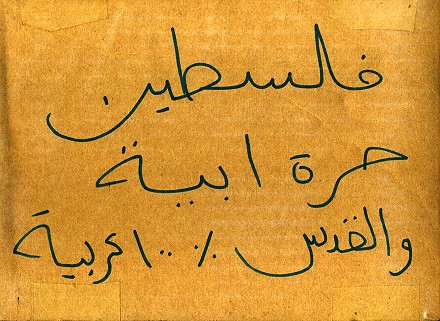 فلسطين
حرة ابية
والقدس ٪١٠٠ عربية